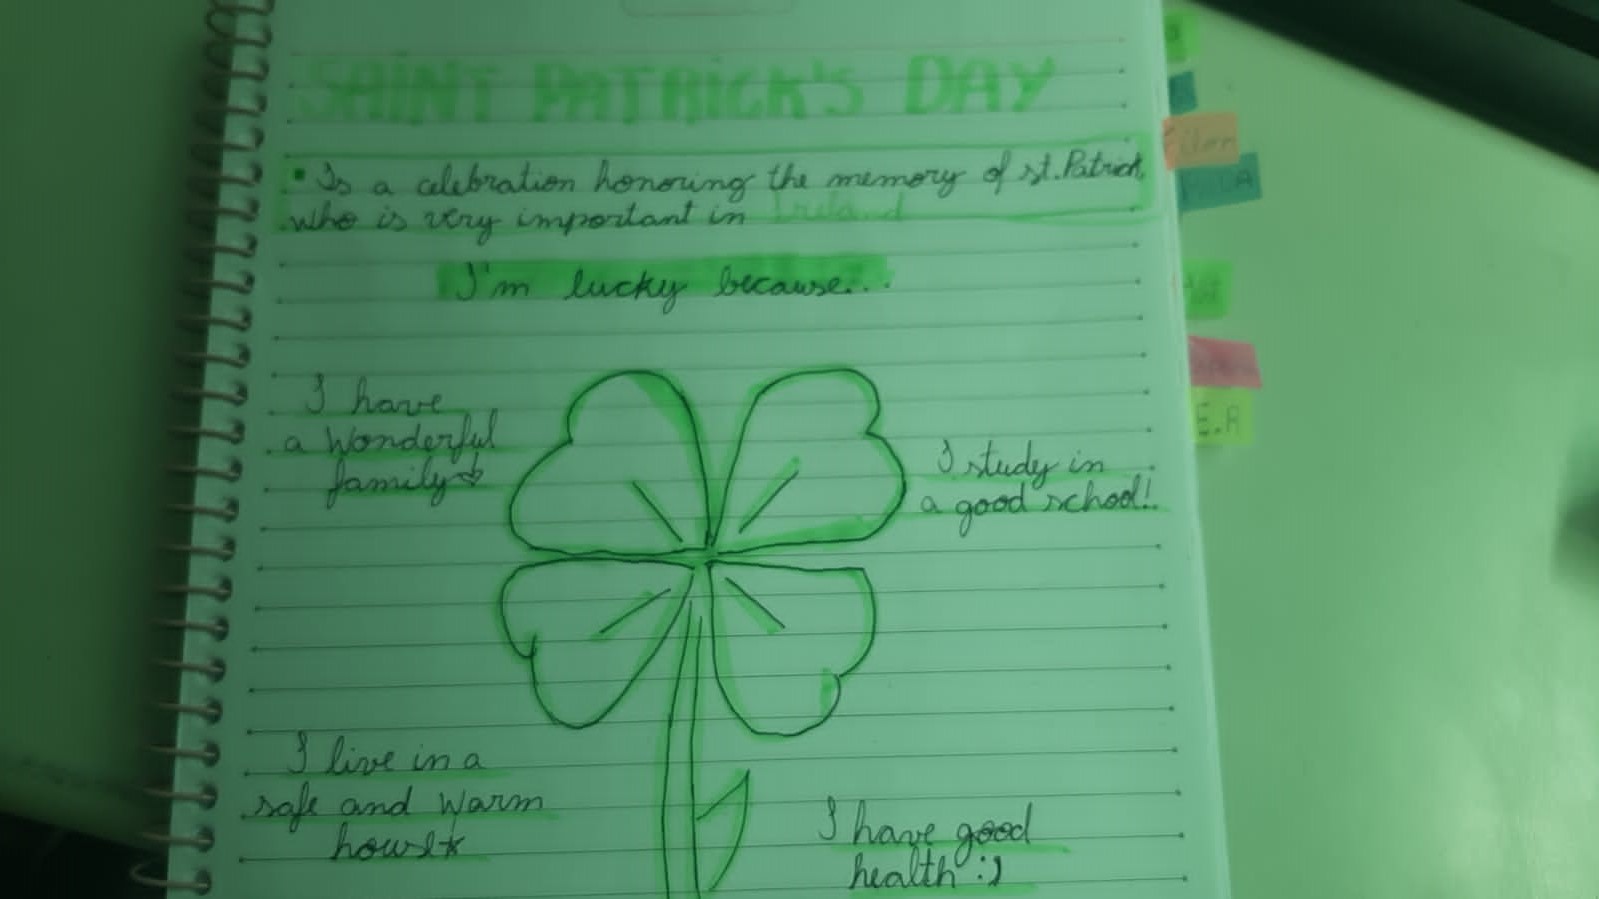 SAINT PATRICK'S DAY
Is a celebration honoring the memory of st. Patrick,
who is very important in Ireland
I'm lucky because...
I have
a wonderful
family
I study in
a good school!
I live in a
safe and warm
house
I have good
health :)
E.R